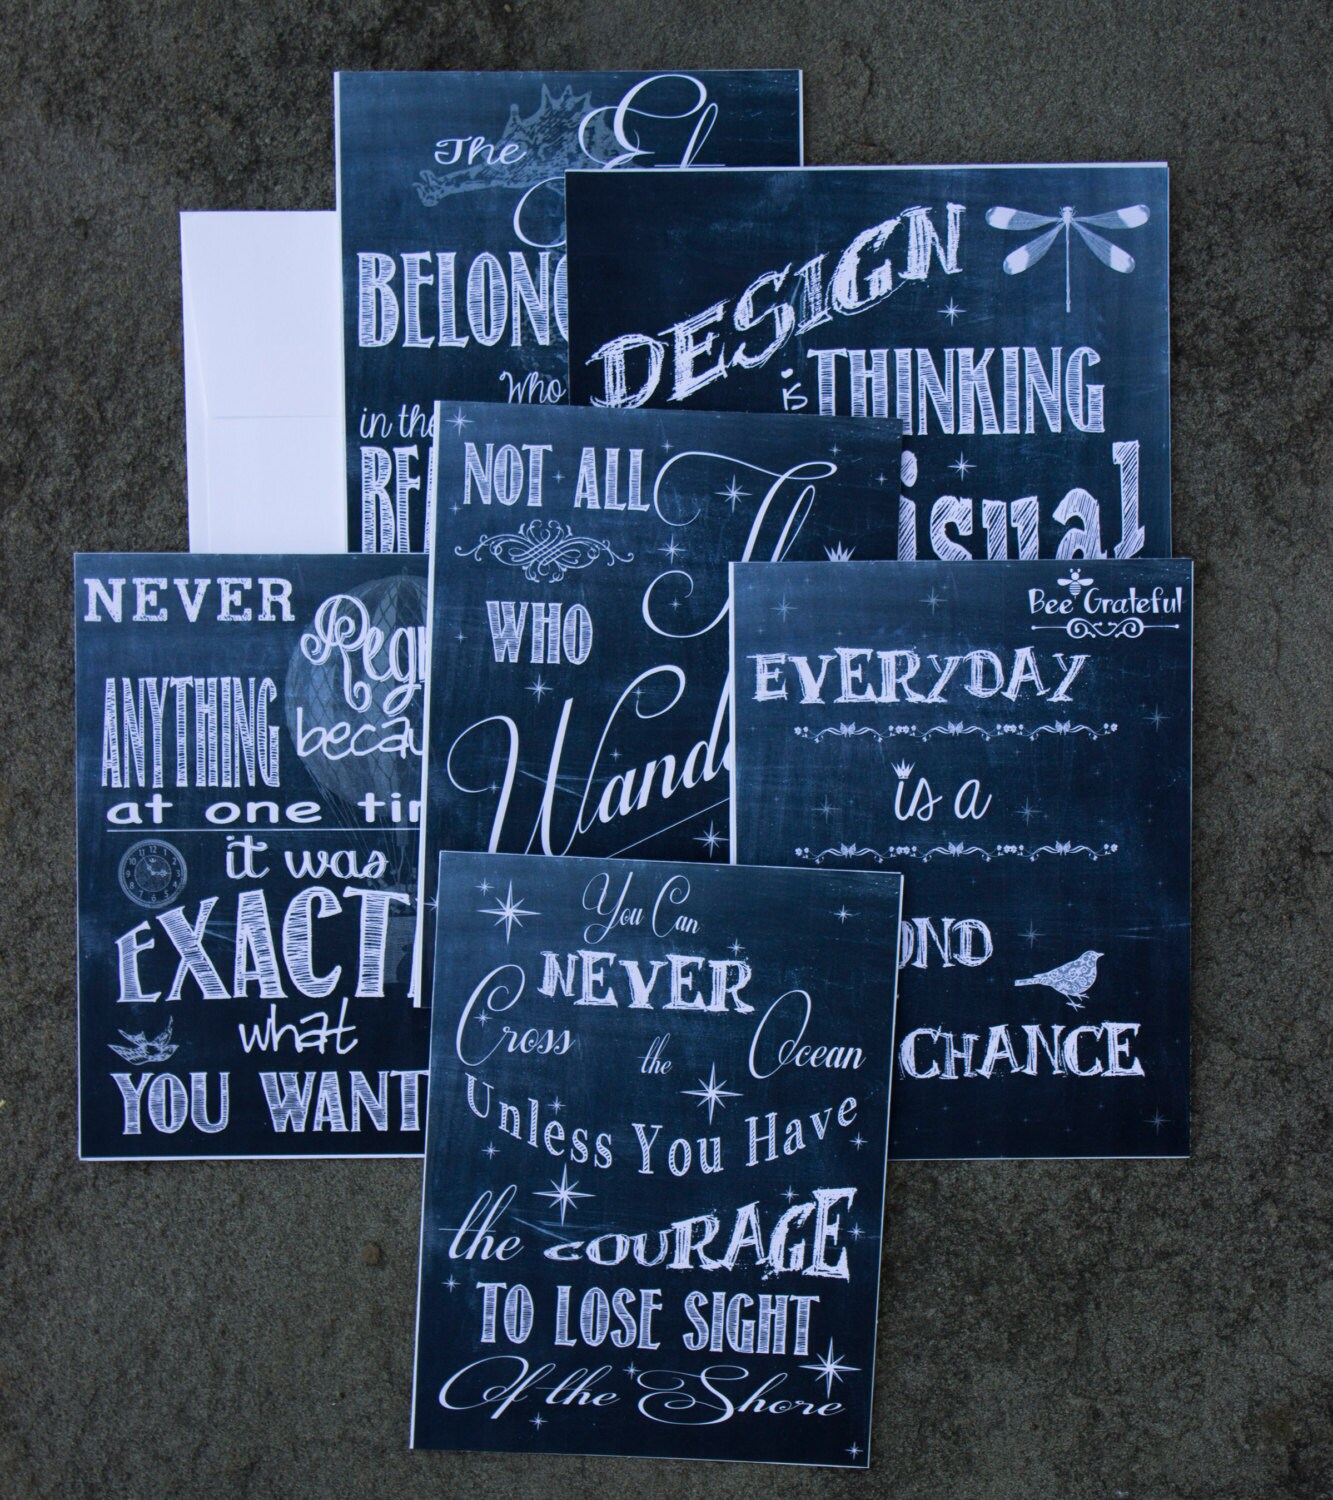 The
BELONG
Who
in the
DESIGN
is THINKING
isual
NOT ALL
WHO
NEVER
ANYTHING
at one
it was
EXACT
what
YOU WANT
Bee Grateful
EVERYDAY
is a
OND
CHANCE
You Can
NEVER
Cross the Ocean
Unless You Have
the COURAGE
TO LOSE SIGHT
Of the Shore